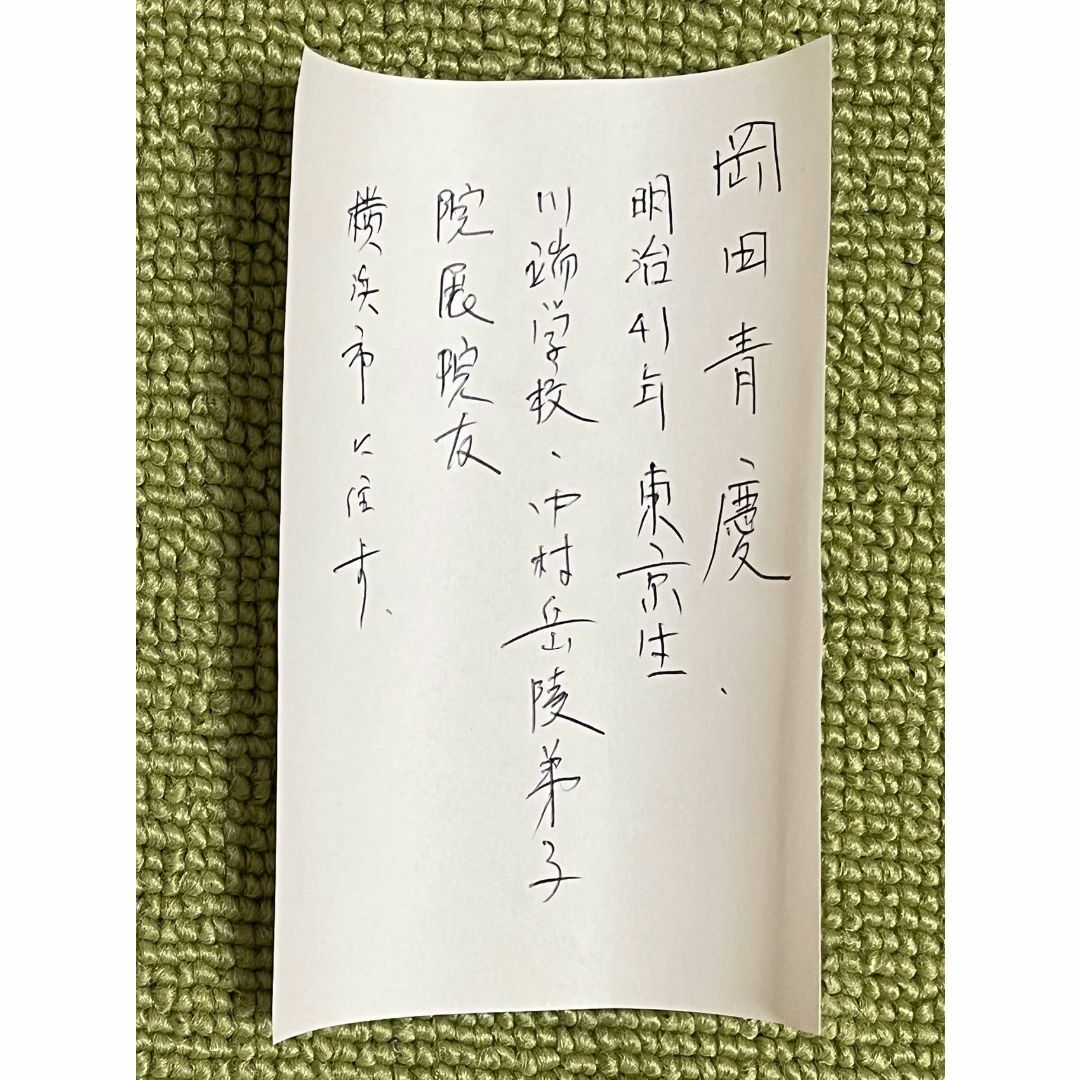 岡田青慶
明治41年 東京生、
川端学校、中村岳陵弟子
院展院友
横浜市に住す、